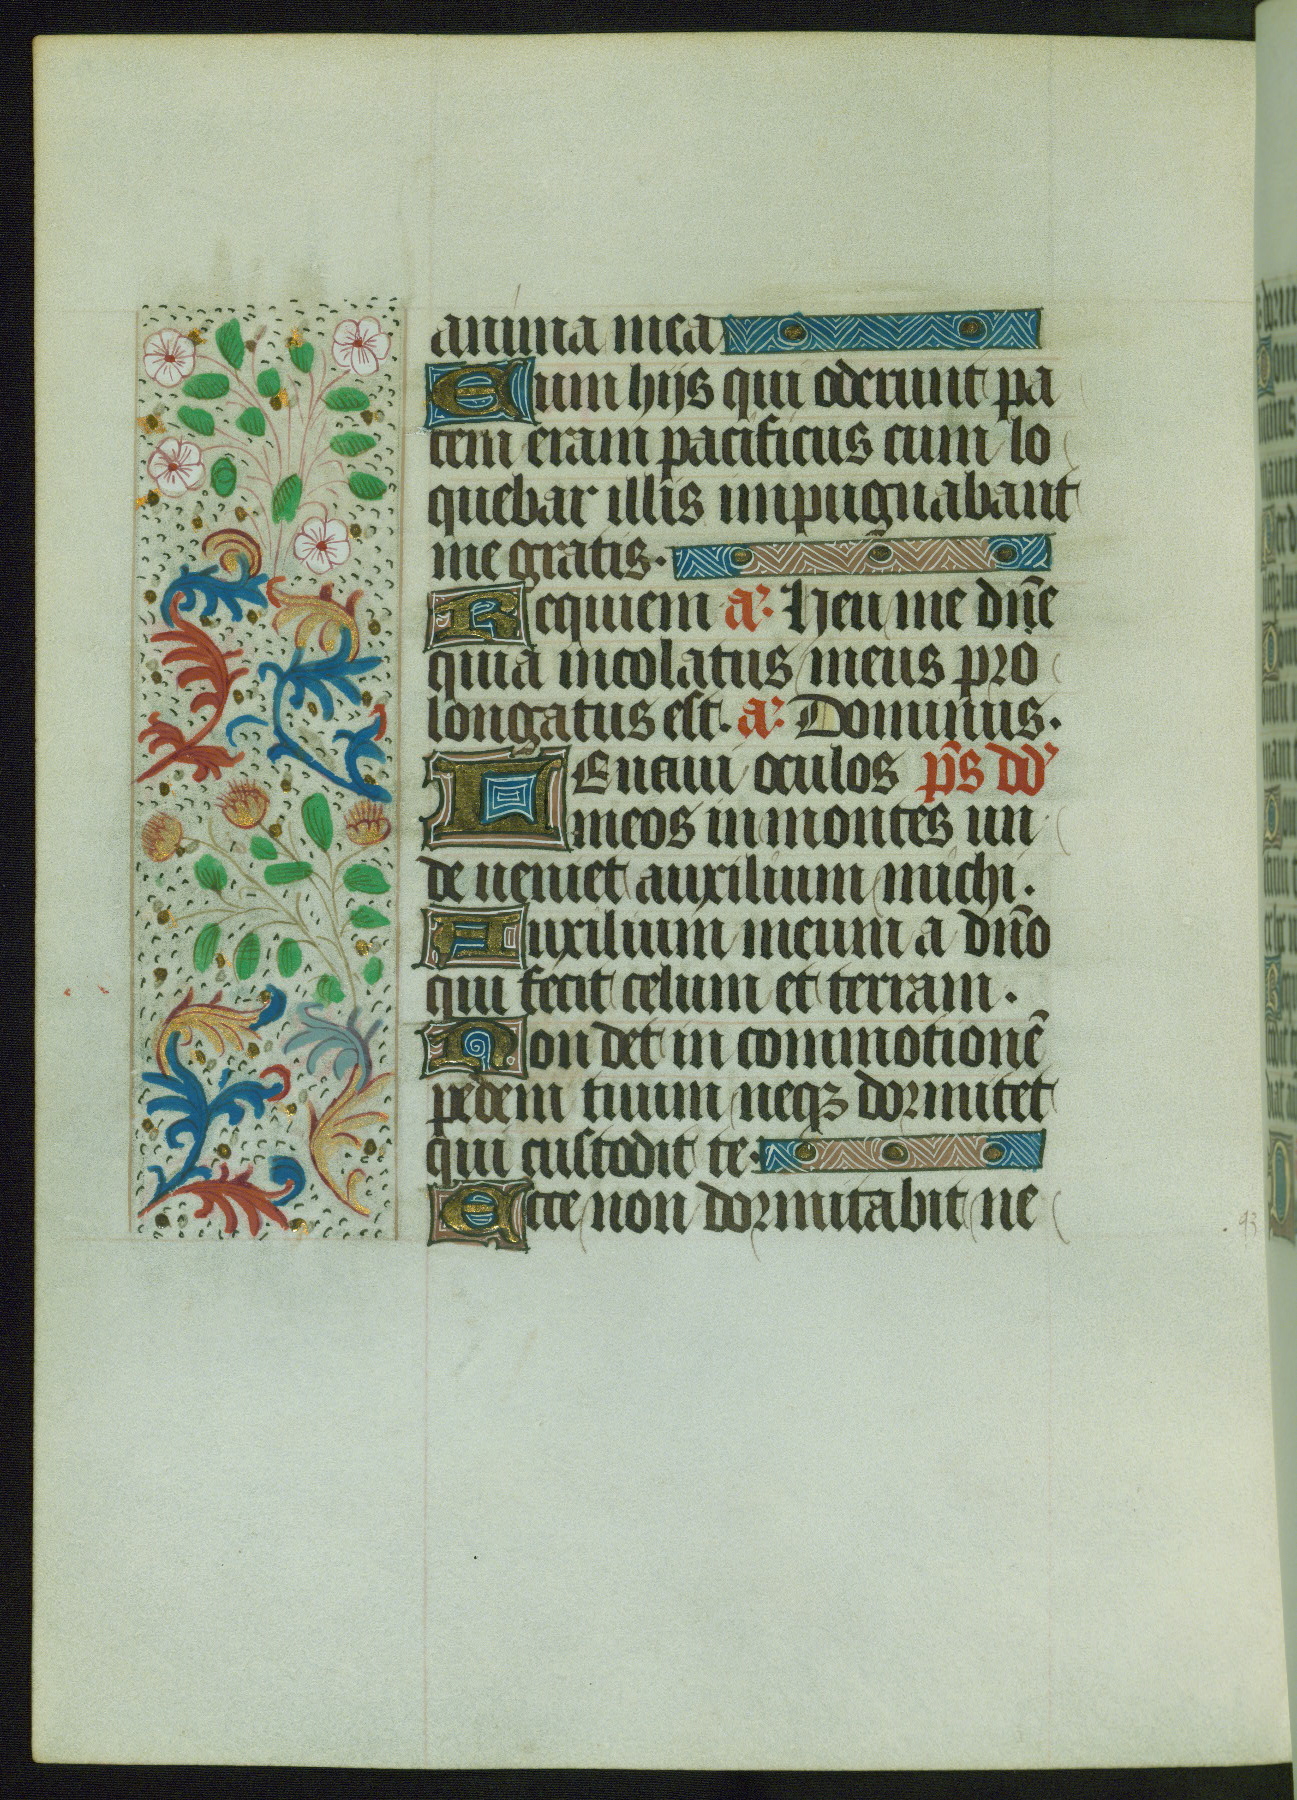 anima mea
Cum hijs qui oderunt pa
cem eram pacificus cum lo
quebar illis impugnabant
me gratis.
Requiem a᷑. Heu me dn̄e
quia incolatus meus pro
longatus est. a᷑. Dominus.
LEuaui oculos ps̄ dd̄
meos in montes un
de ueniet auxilium michi.
Auxilium meum a dn̄o
qui fecit celum et terram.
Non det in commotionē
pedem tuum neqꝫ dormitet
qui custodit te.
Ecce non dormitabit ne
.93